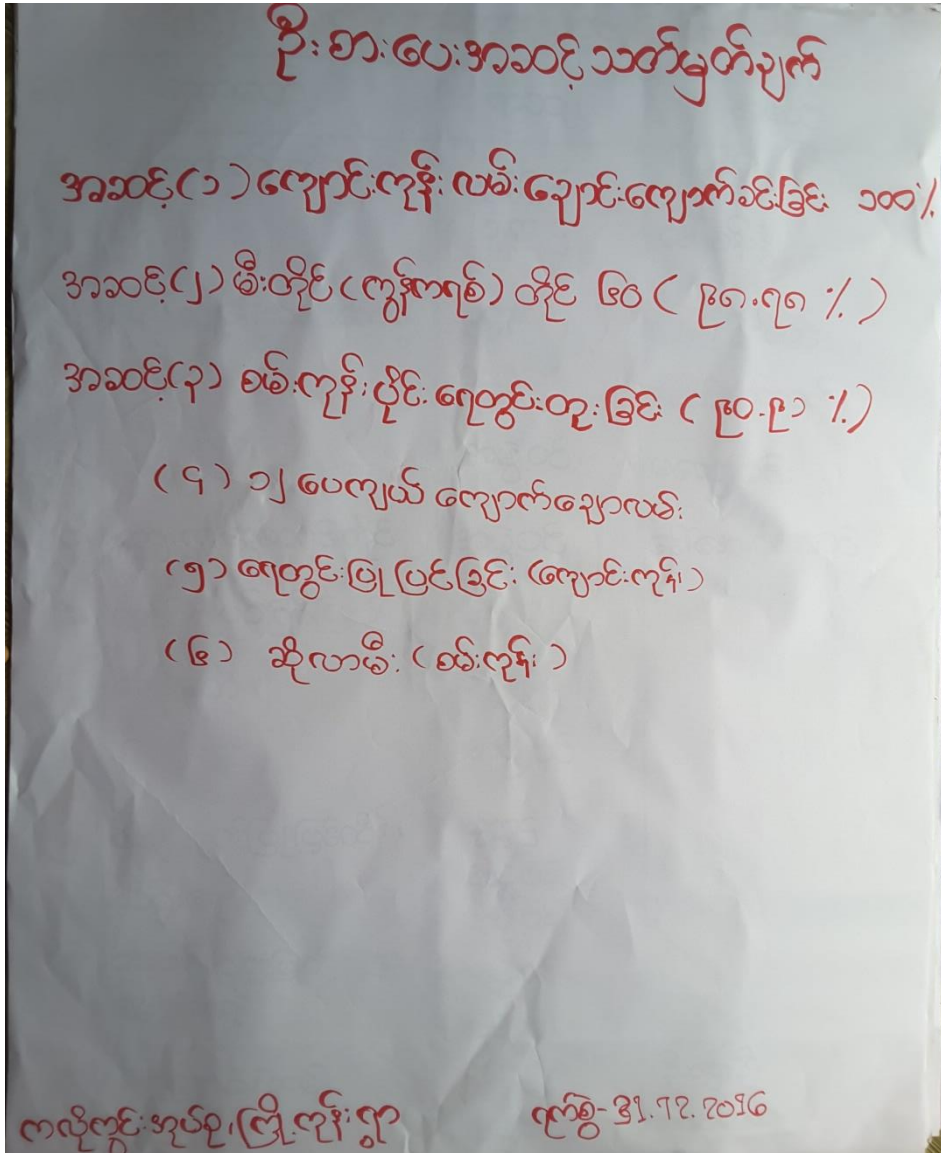 ဦးစားပေးအဆင့်သတ်မှတ်ချက်
အဆင့်(၁)ကျောင်းကုန်းလမ်းချောင်းကျောက်ခင်းခြင်း ၁၀၀%
အဆင့်(၂)မီးတိုင်(ကွန်ကရစ်)တိုင် ၆၀ ( ၉၈.၇၈ % )
အဆင့်(၃) စမ်းကုန်းပိုင်းရေတွင်းတူးခြင်း ( ၉၀.၉၁ %)
(၄) ၁၂ ပေကျယ် ကျောက်ချောလမ်း
(၅) ရေတွင်းပြုပြင်ခြင်း (ကျောင်းကုန်း)
(၆) ဆိုလာမီး (စမ်းကုန်း)
ကလိုကွင်းအုပ်စု၊ကြို့ကုန်းရွာ
ရက်စွဲ-31.12.2016